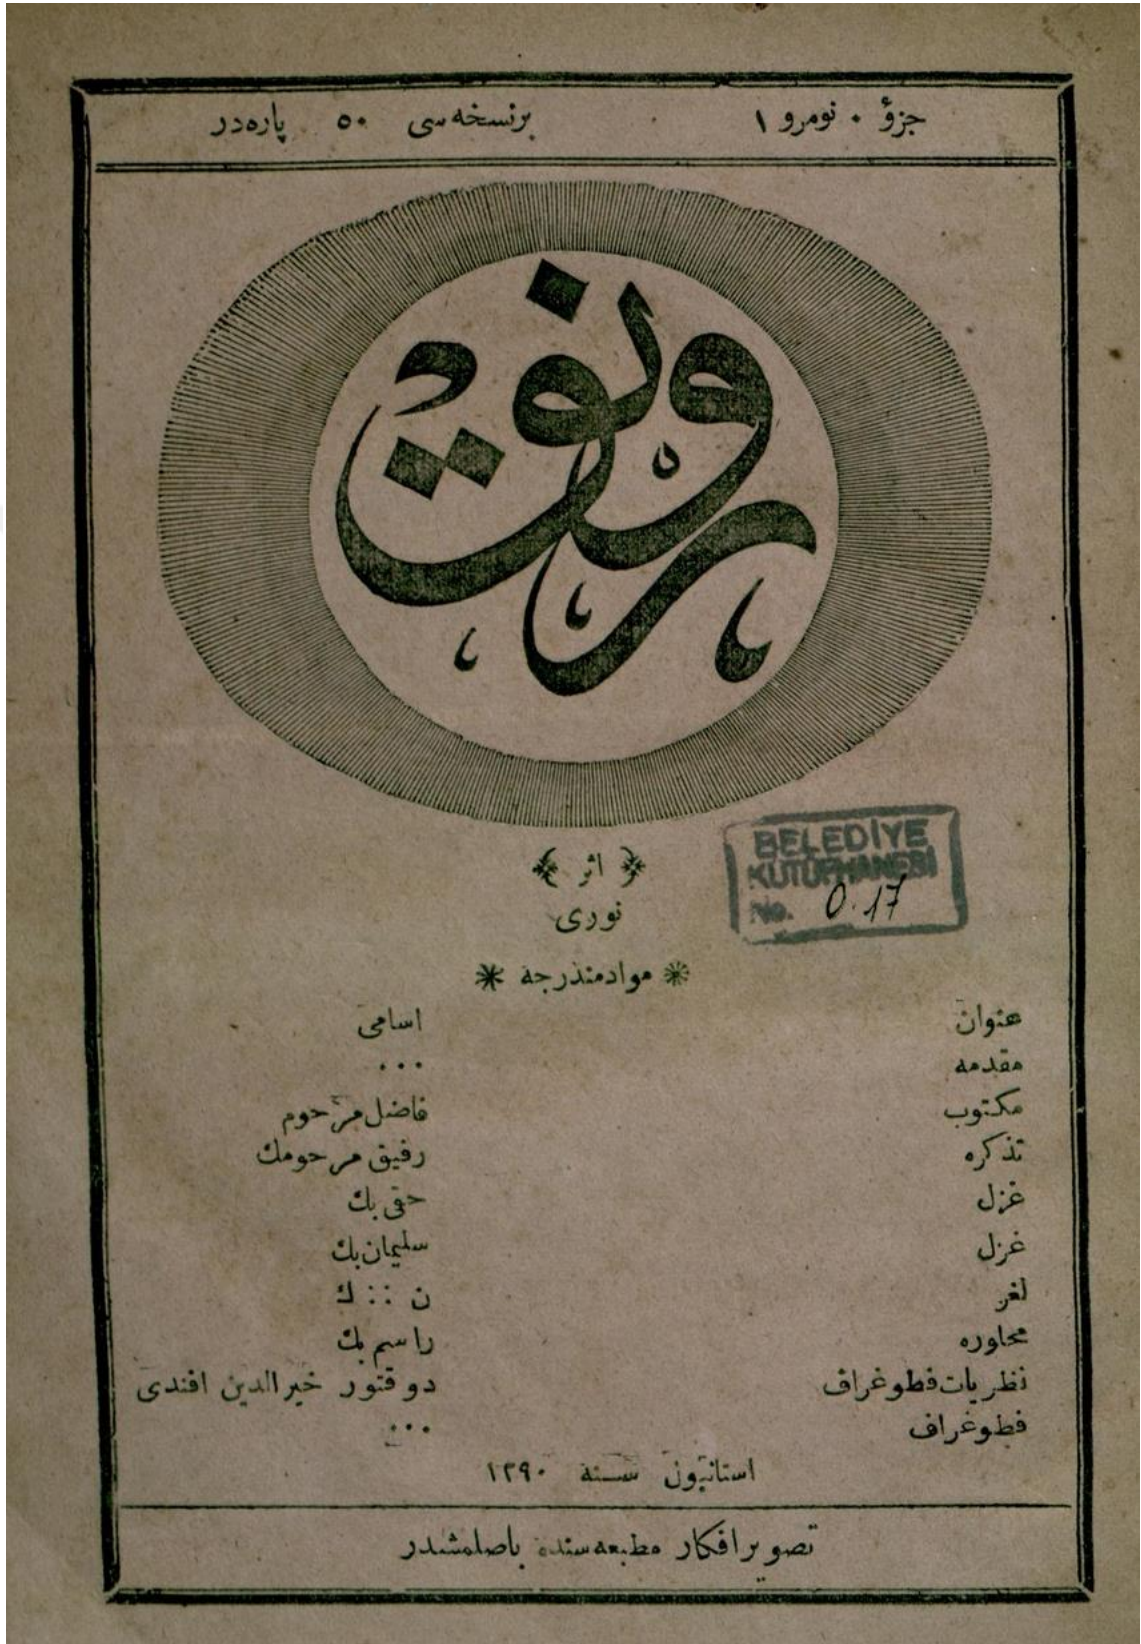 جزؤ ٠ نومرو ١ برنسخه سی ٥٠ پاره در
رونق
اثر
نوری
BELEDİYE
KÜTÜPHANESİ
No. 0.17
مواد مندرجه
عنوان اسامی
مقدمه ...
مكتوب فاضل مرحوم
تذكره رفيق مرحومك
غزل حقی بك
غزل سليمان بك
لغز ن :: ك
محاوره راسم بك
نظريات فطوغراف دوقتور خيرالدين افندی
فطوغراف ...
استانبول سنة ١٢٩٠
تصوير افكار مطبعه سنده باصلمشدر